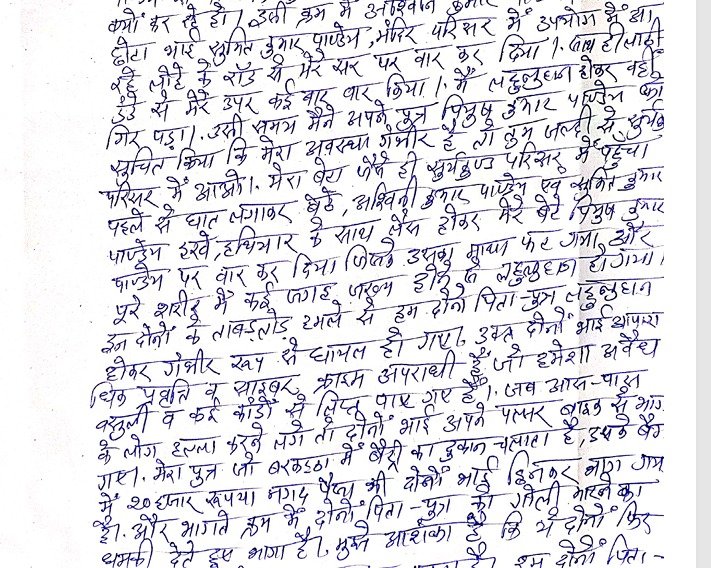 क्यों कर रहे हो। उसी क्रम में अश्विनी कुमार
छोटा भाई सुमित कुमार पाण्डेय, मंदिर परिसर में उपयोग में आ
रहे लोहे के रॉड से मेरे सर पर वार कर दिया। साथ ही लाठी
डंडे से मेरे उपर कई बार वार किया। मैं लहुलुहान होकर वही
गिर पड़ा। उसी समय मैंने अपने पुत्र पियुष कुमार पाण्डेय को
सुचित किया कि मेरा अवस्था गंभीर है तो तुम जल्दी से सुर्यकुण्ड
परिसर में आओ। मेरा बेटा जैसे ही सुर्यकुण्ड परिसर में पहुचा
पहले से घात लगाकर बैठे, अश्विनी कुमार पाण्डेय एवं सुमित कुमार
पाण्डेय हरवे, हथियार के साथ लैस होकर मेरे बेटे पियुष कुमार
पाण्डेय पर वार कर दिया जिससे उसका माथा फट गया, और
पूरे शरीर में कई जगह जख्म होने से लहुलुहान हो गया।
इन दोनों के ताबड़तोड़ हमले से हम दोनों पिता-पुत्र लहुलुहान
होकर गंभीर रूप से घायल हो गए। उक्त दोनों भाई आपरा
धिक प्रवृति व साइबर क्राइम अपराधी हैं, जो हमेशा अवैध
वसुली व कई कांडों से लिप्त पाए गए हैं। जब आस-पास
के लोग हल्ला करने लगे तो दोनों भाई अपने पल्सर बाइक से भाग
गए। मेरा पुत्र जो बरकट्ठा में बैट्री का दुकान चलाता है, उसके बैग
में 20 हजार रूपया नगद पैसा भी दोनों भाई छिनकर भाग गया
है। और भागते क्रम में दोनों पिता-पुत्र को गोली मारने का
धमकी देते हुए भागा है। मुझे आशंका है कि ये दोनों फिर
हम दोनों पिता-